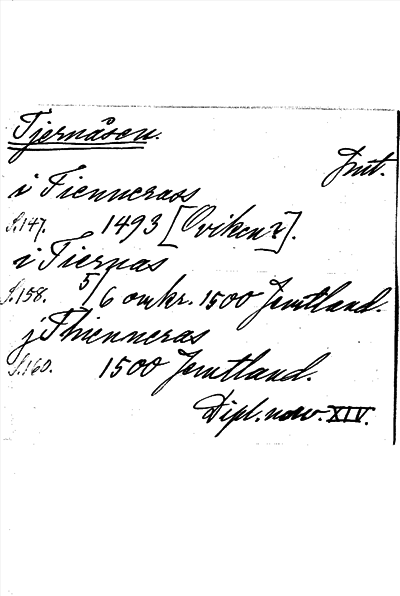 Tjernåsen.
Jmt.
i Tienneraas
S.147. 1493 [Oviken?].
i Tiernas
S.158. 5/6 omkr. 1500 Jemtland.
j Thienneras
S.160. 1500 Jemtland.
Dipl. norv. XIV.